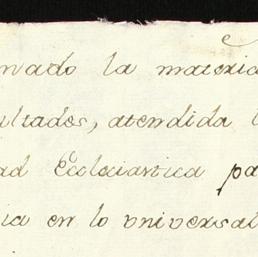 nado la materia
ultades, atendida l
ad Ecleciastica pa
ia en lo universal